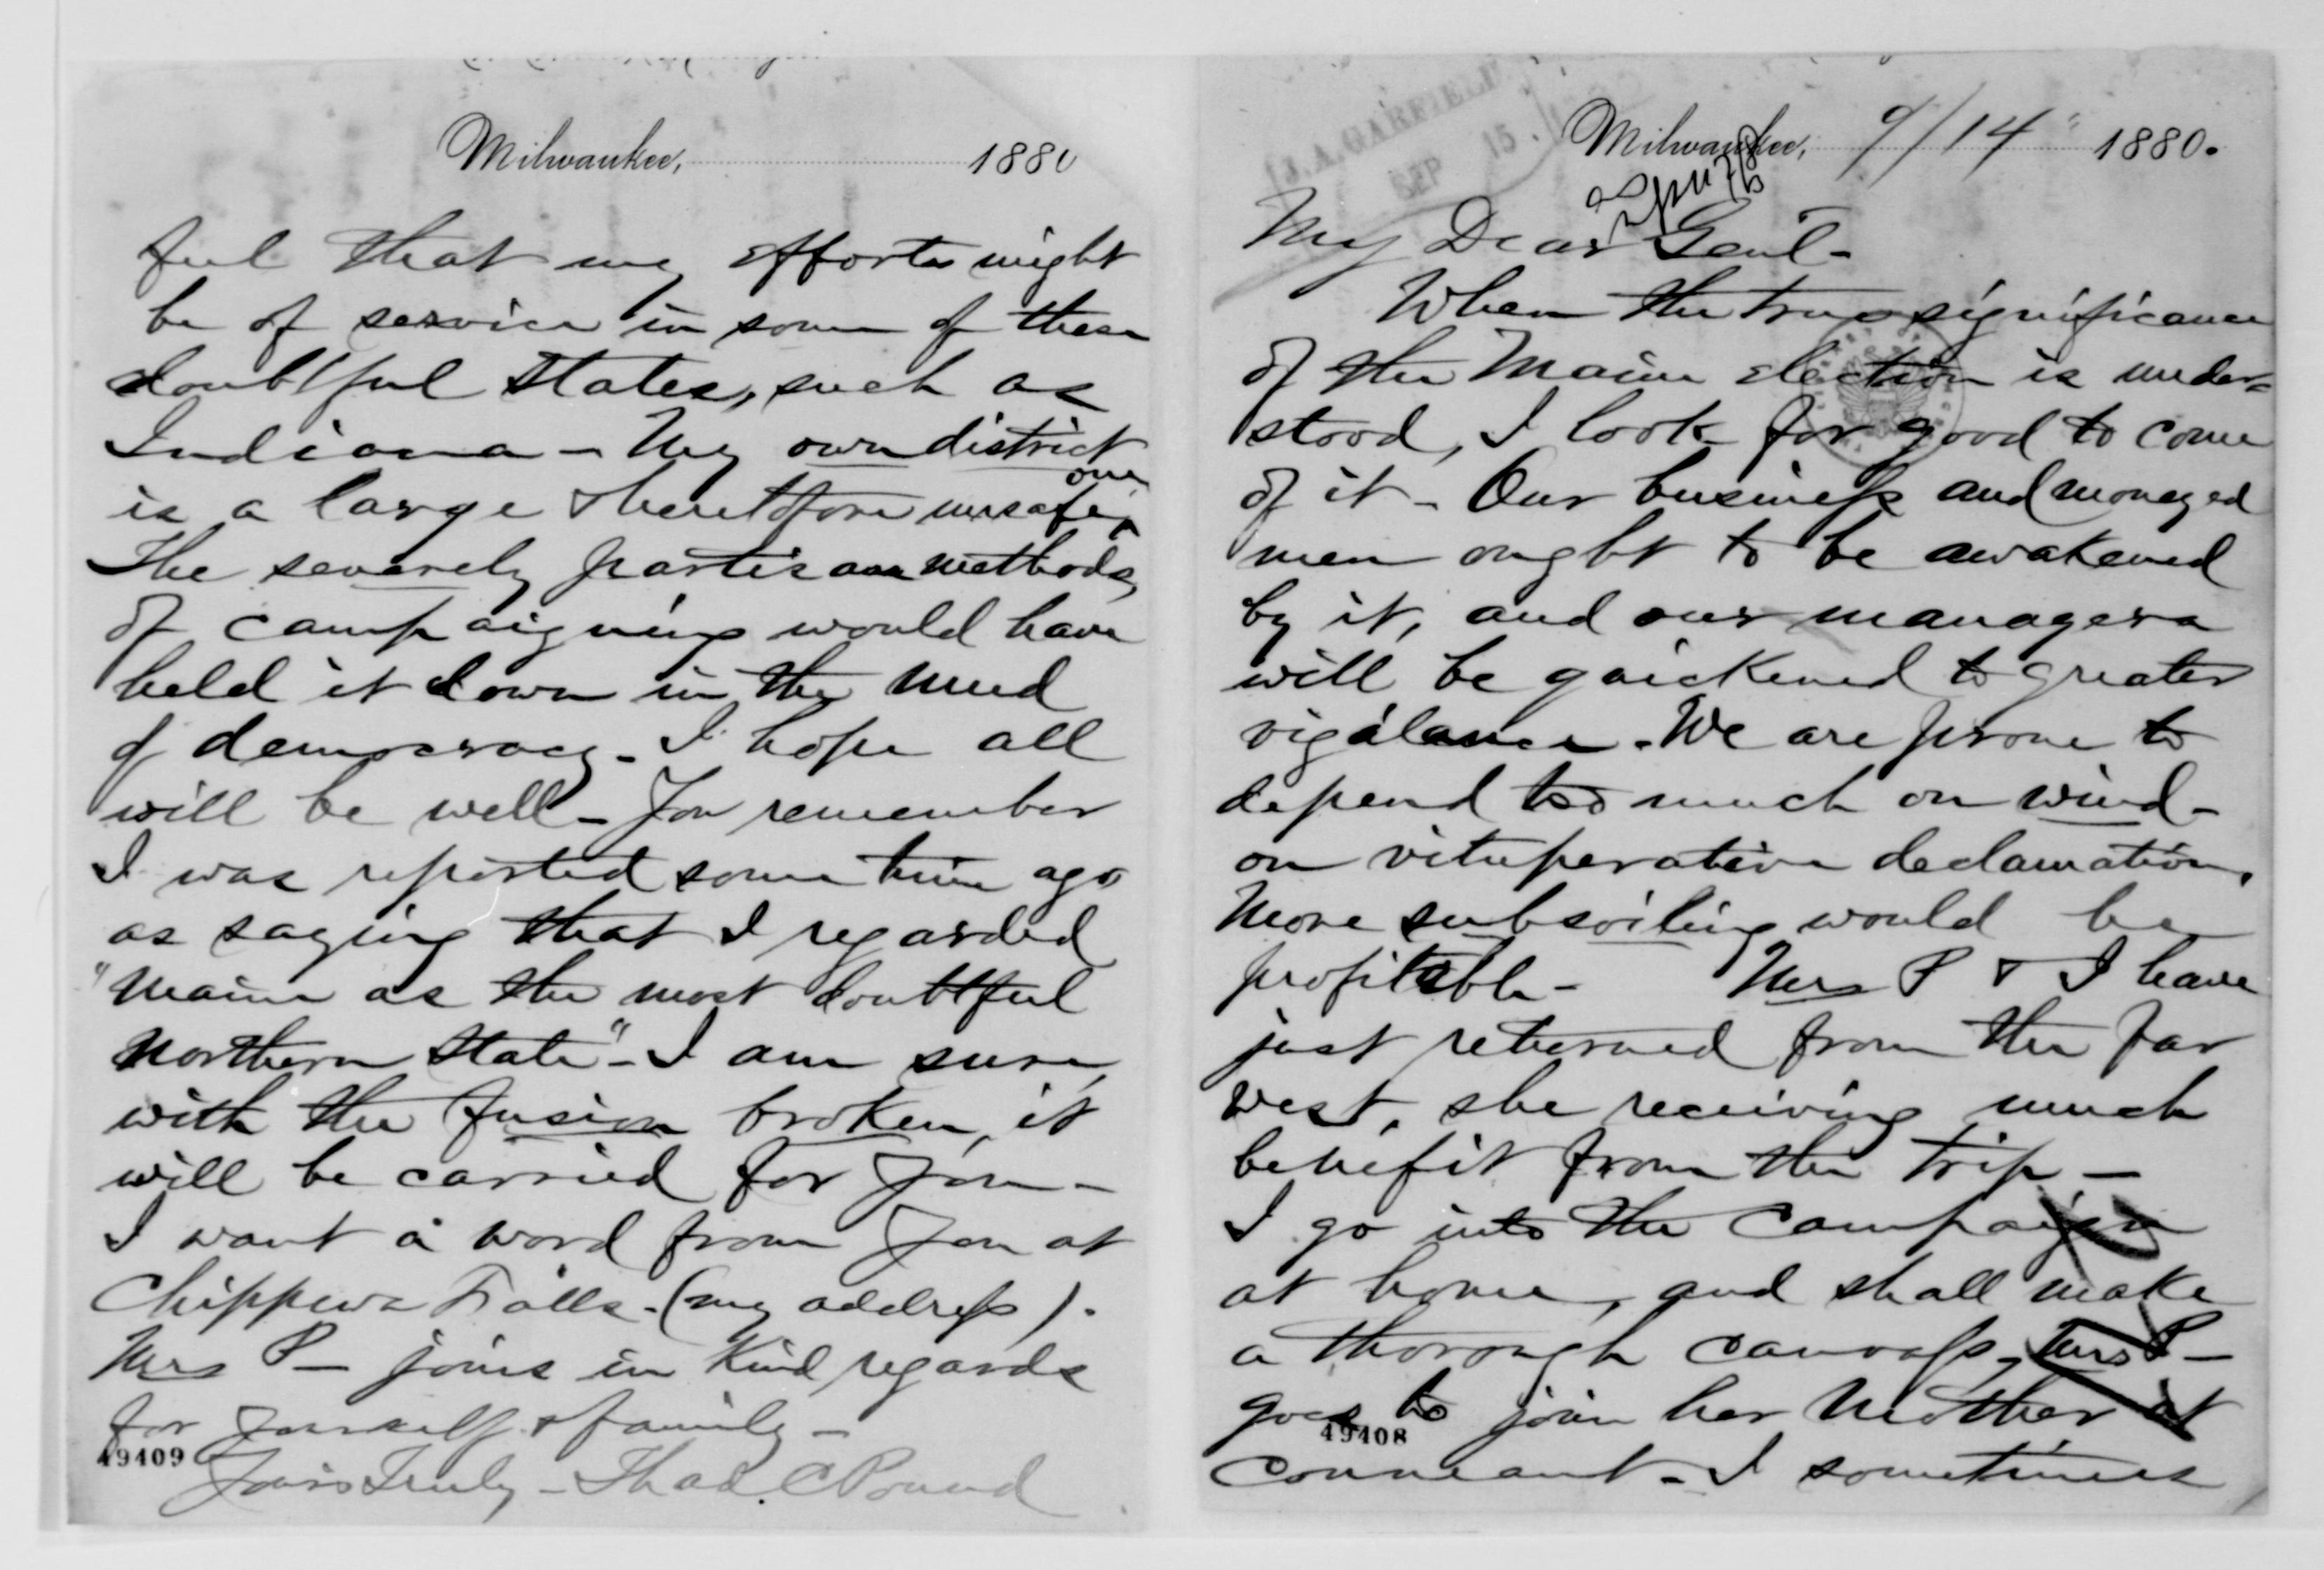 Milwaukee, 9/14 1880.
J. A. GARFIELD
SEP 15
My Dear Genl-
When the true significance
of the Maine election is under=
stood, I look for good to come
of it - Our business and moneyed
men ought to be awakened
by it, and our managers
will be quickened to greater
vigalance. We are prone to
depend too much on wind-
on vituperative declamation.
More subsoiling would be
profitable - Mrs P & I have
just returned from the far
west, she receiving much
benefit from the trip -
I go into the campaign
at home, and shall make
a thorough canvass, Mrs P -
goes to join her Mother at
49408
Conneaut - I sometimes
Milwaukee, 1880
feel that my efforts might
be of service in some of these
doubtful States, such as
Indiana - My own district
is a large & heretofore unsafe one
The severely partisan methods
of campaigning would have
held it down in the mud
of democracy - I hope all
will be well - You remember
I was reported some time ago
as saying that I regarded
"Maine as the most doubtful
Northern State" - I am sure,
with the fusion broken, it
will be carried for you -
I want a word from you at
Chippewa Falls. (my address).
Mrs P - joins in kind regards
for yourself & family -
49409
Yours Truly - Thad. C Pound